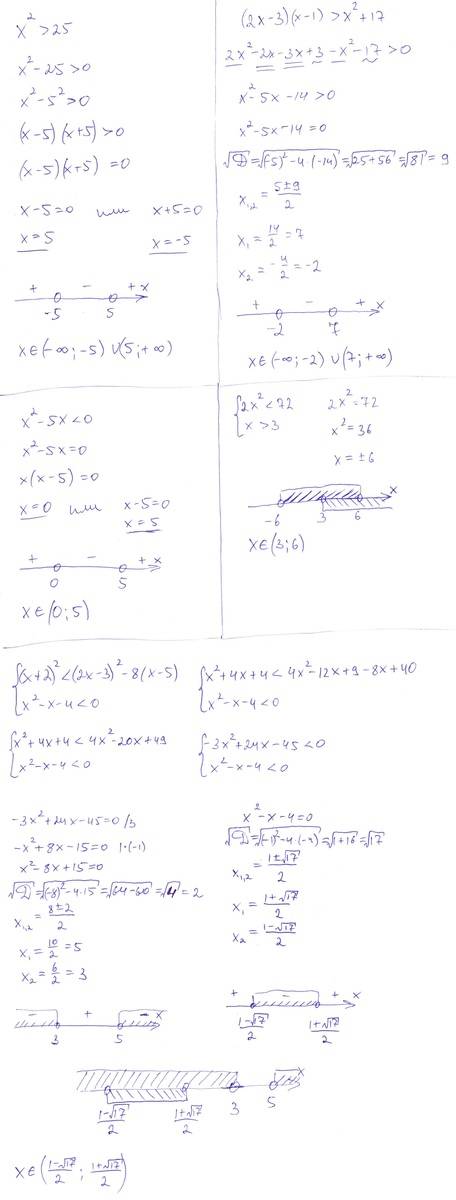 x² > 25
x² - 25 > 0
x² - 5² > 0
(x-5)(x+5) > 0
(x-5)(x+5) = 0
x-5=0 или x+5=0
x=5 x=-5
+ - + x
-5 5
x∈(-∞;-5)∪(5;+∞)
(2x-3)(x-1) > x²+17
2x²-2x-3x+3-x²-17>0
x²-5x-14>0
x²-5x-14=0
√D=√(-5)²-4·(-14)=√25+56=√81=9
x₁,₂=5±9/2
x₁=14/2=7
x₂=-4/2=-2
+ - + x
-2 7
x∈(-∞;-2)∪(7;+∞)
x²-5x<0
x²-5x=0
x(x-5)=0
x=0 или x-5=0
x=5
+ - + x
0 5
x∈(0;5)
{2x²<72
x>3
2x²=72
x²=36
x=±6
x
-6 3 6
x∈(3;6)
{(x+2)²<(2x-3)²-8(x-5)
x²-x-4<0
{x²+4x+4<4x²-12x+9-8x+40
x²-x-4<0
{x²+4x+4<4x²-20x+49
x²-x-4<0
{-3x²+24x-45<0
x²-x-4<0
-3x²+24x-45=0 /3
-x²+8x-15=0 |·(-1)
x²-8x+15=0
√D=√(-8)²-4·15=√64-60=√4=2
x₁,₂=8±2/2
x₁=10/2=5
x₂=6/2=3
- + - x
3 5
x²-x-4=0
√D=√(-1)²-4·(-4)=√1+16=√17
x₁,₂=1±√17/2
x₁=1+√17/2
x₂=1-√17/2
+ - + x
1-√17/2 1+√17/2
x
1-√17/2 1+√17/2 3 5
x∈(1-√17/2; 1+√17/2)